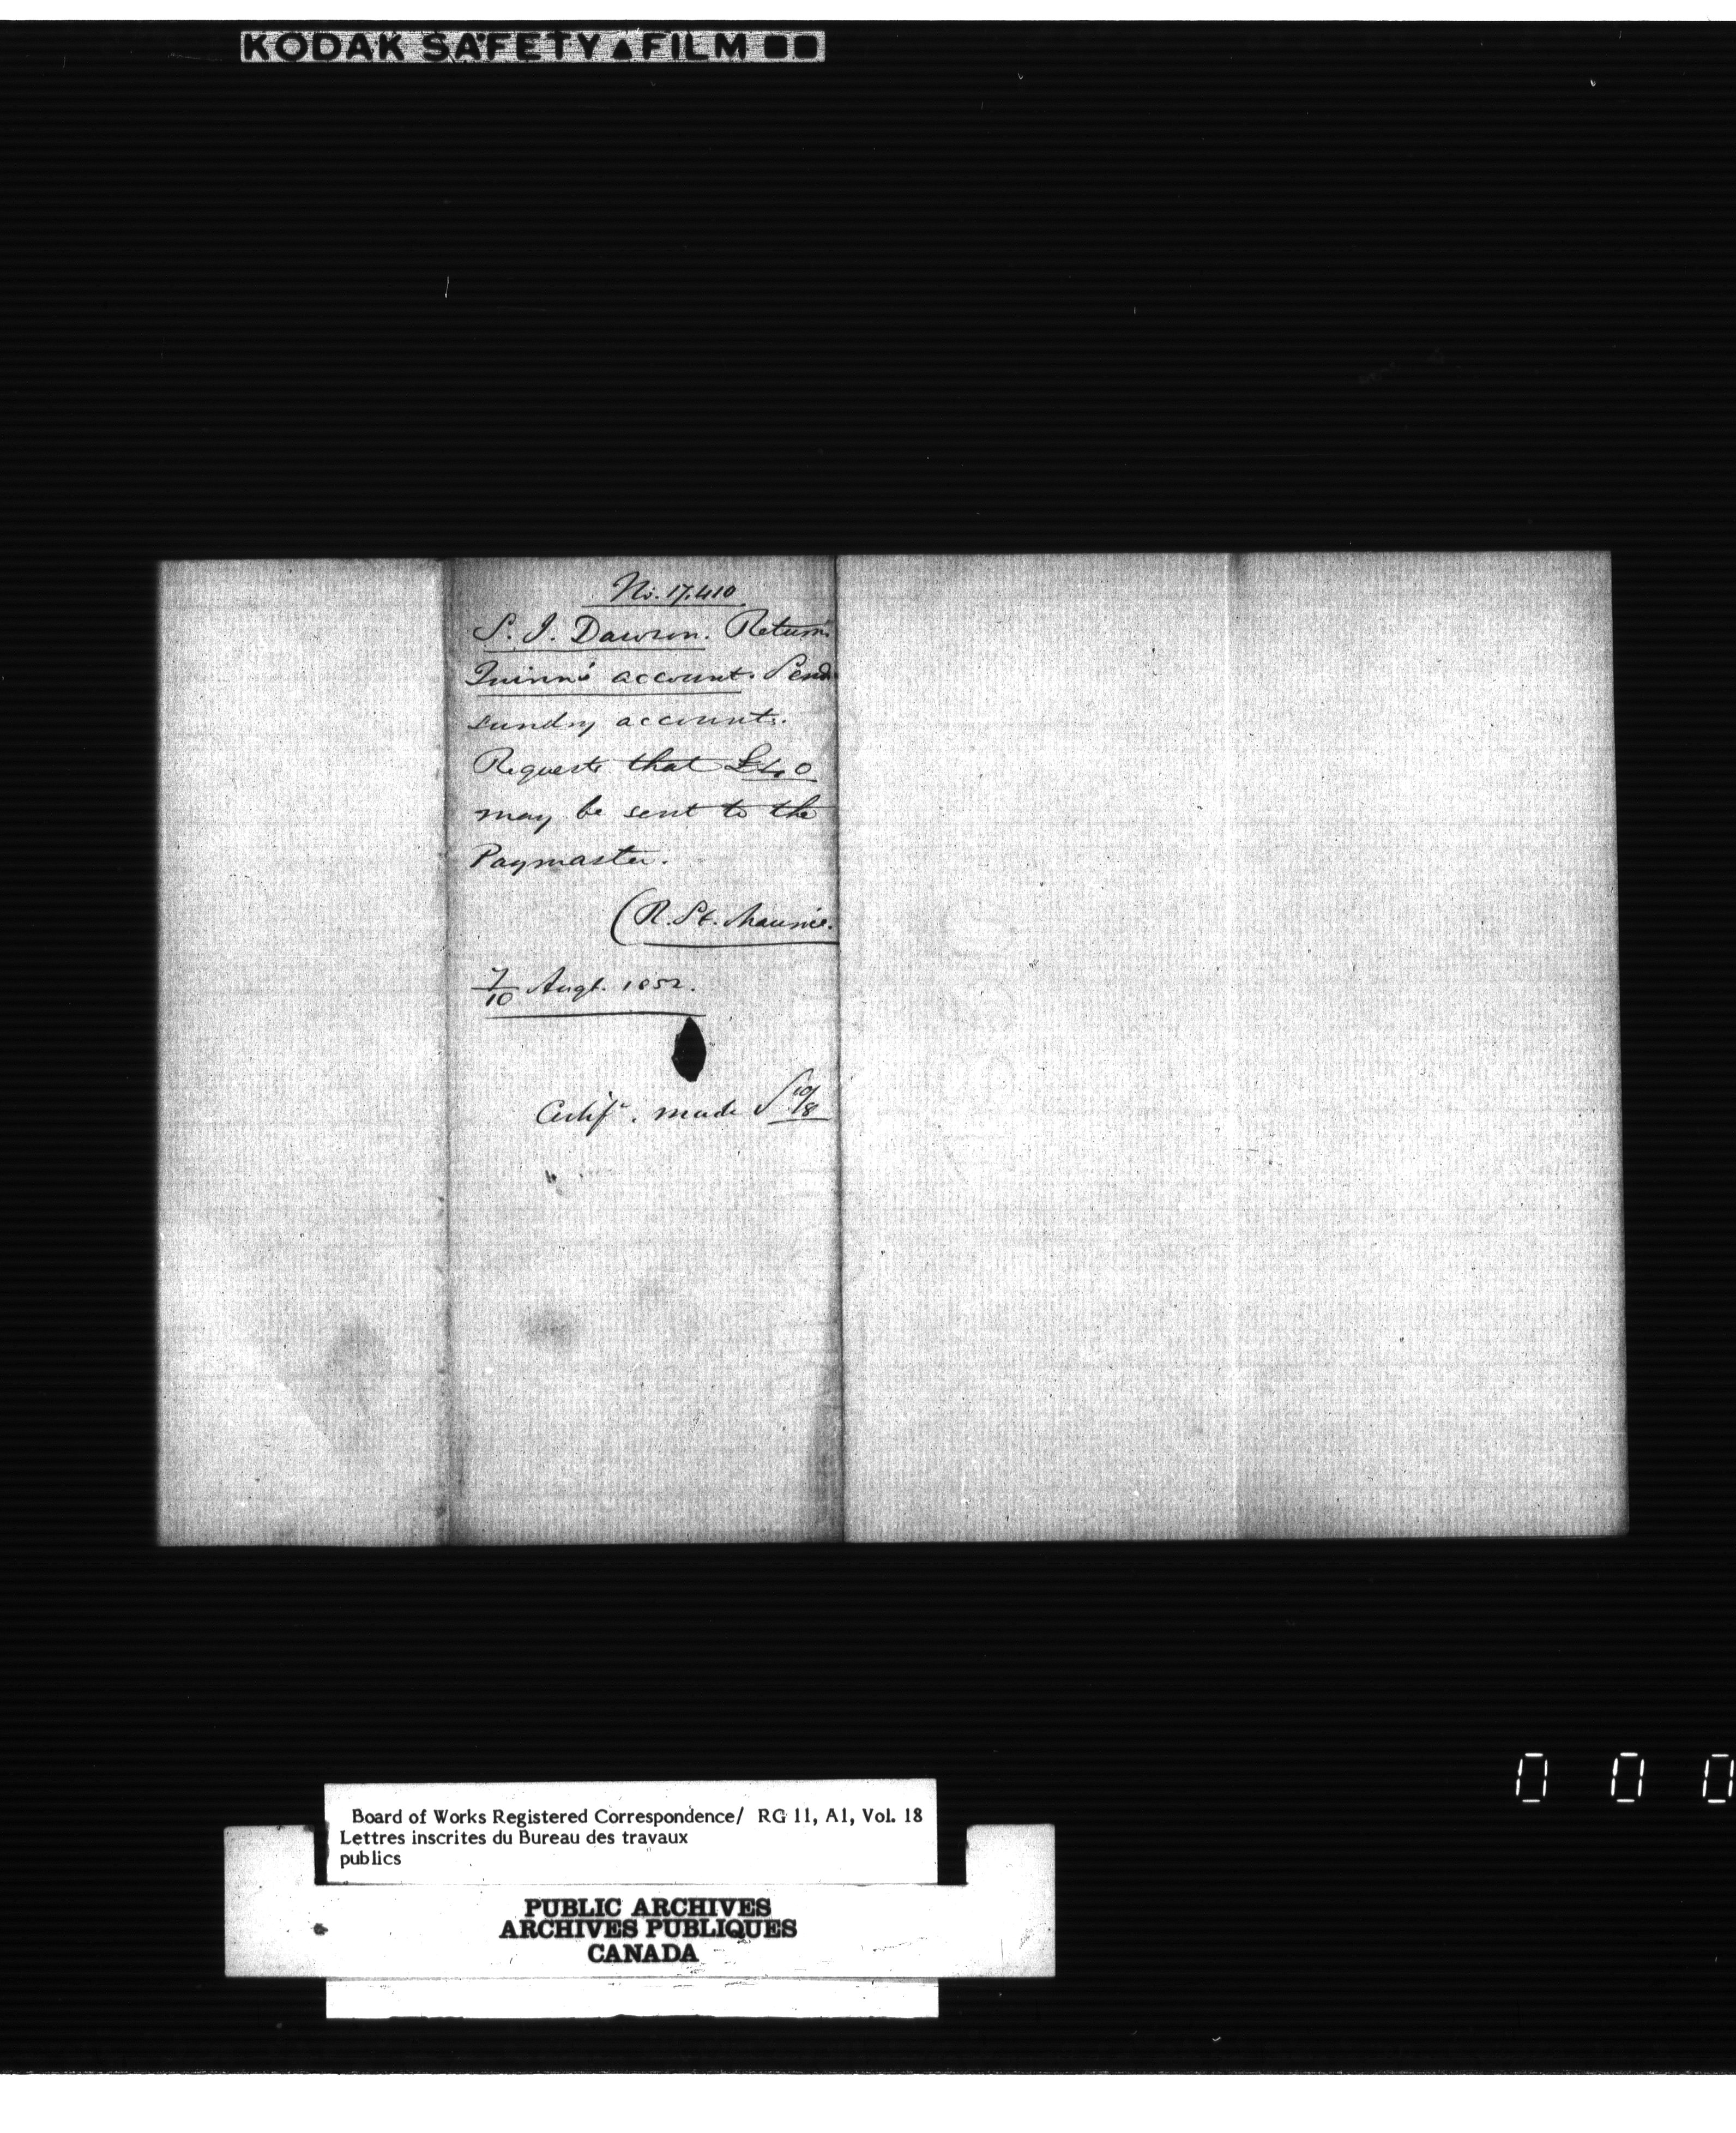 KODAK SAFETY ▲ FILM ■■
No. 17,410
S. J. Dawson. Returns
Quinn's account. Sends
sundry accounts.
Requests that £40
may be sent to the
Paymaster.
(R. St. Maurice.
7/10 Augt. 1852.
Certife. made 10/8
0 0 0
Board of Works Registered Correspondence/ RG 11, A1, Vol. 18
Lettres inscrites du Bureau des travaux
publics
PUBLIC ARCHIVES
ARCHIVES PUBLIQUES
CANADA